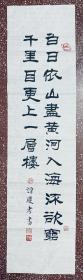 白日依山盡黃河入海流欲窮
千里目更上一層樓